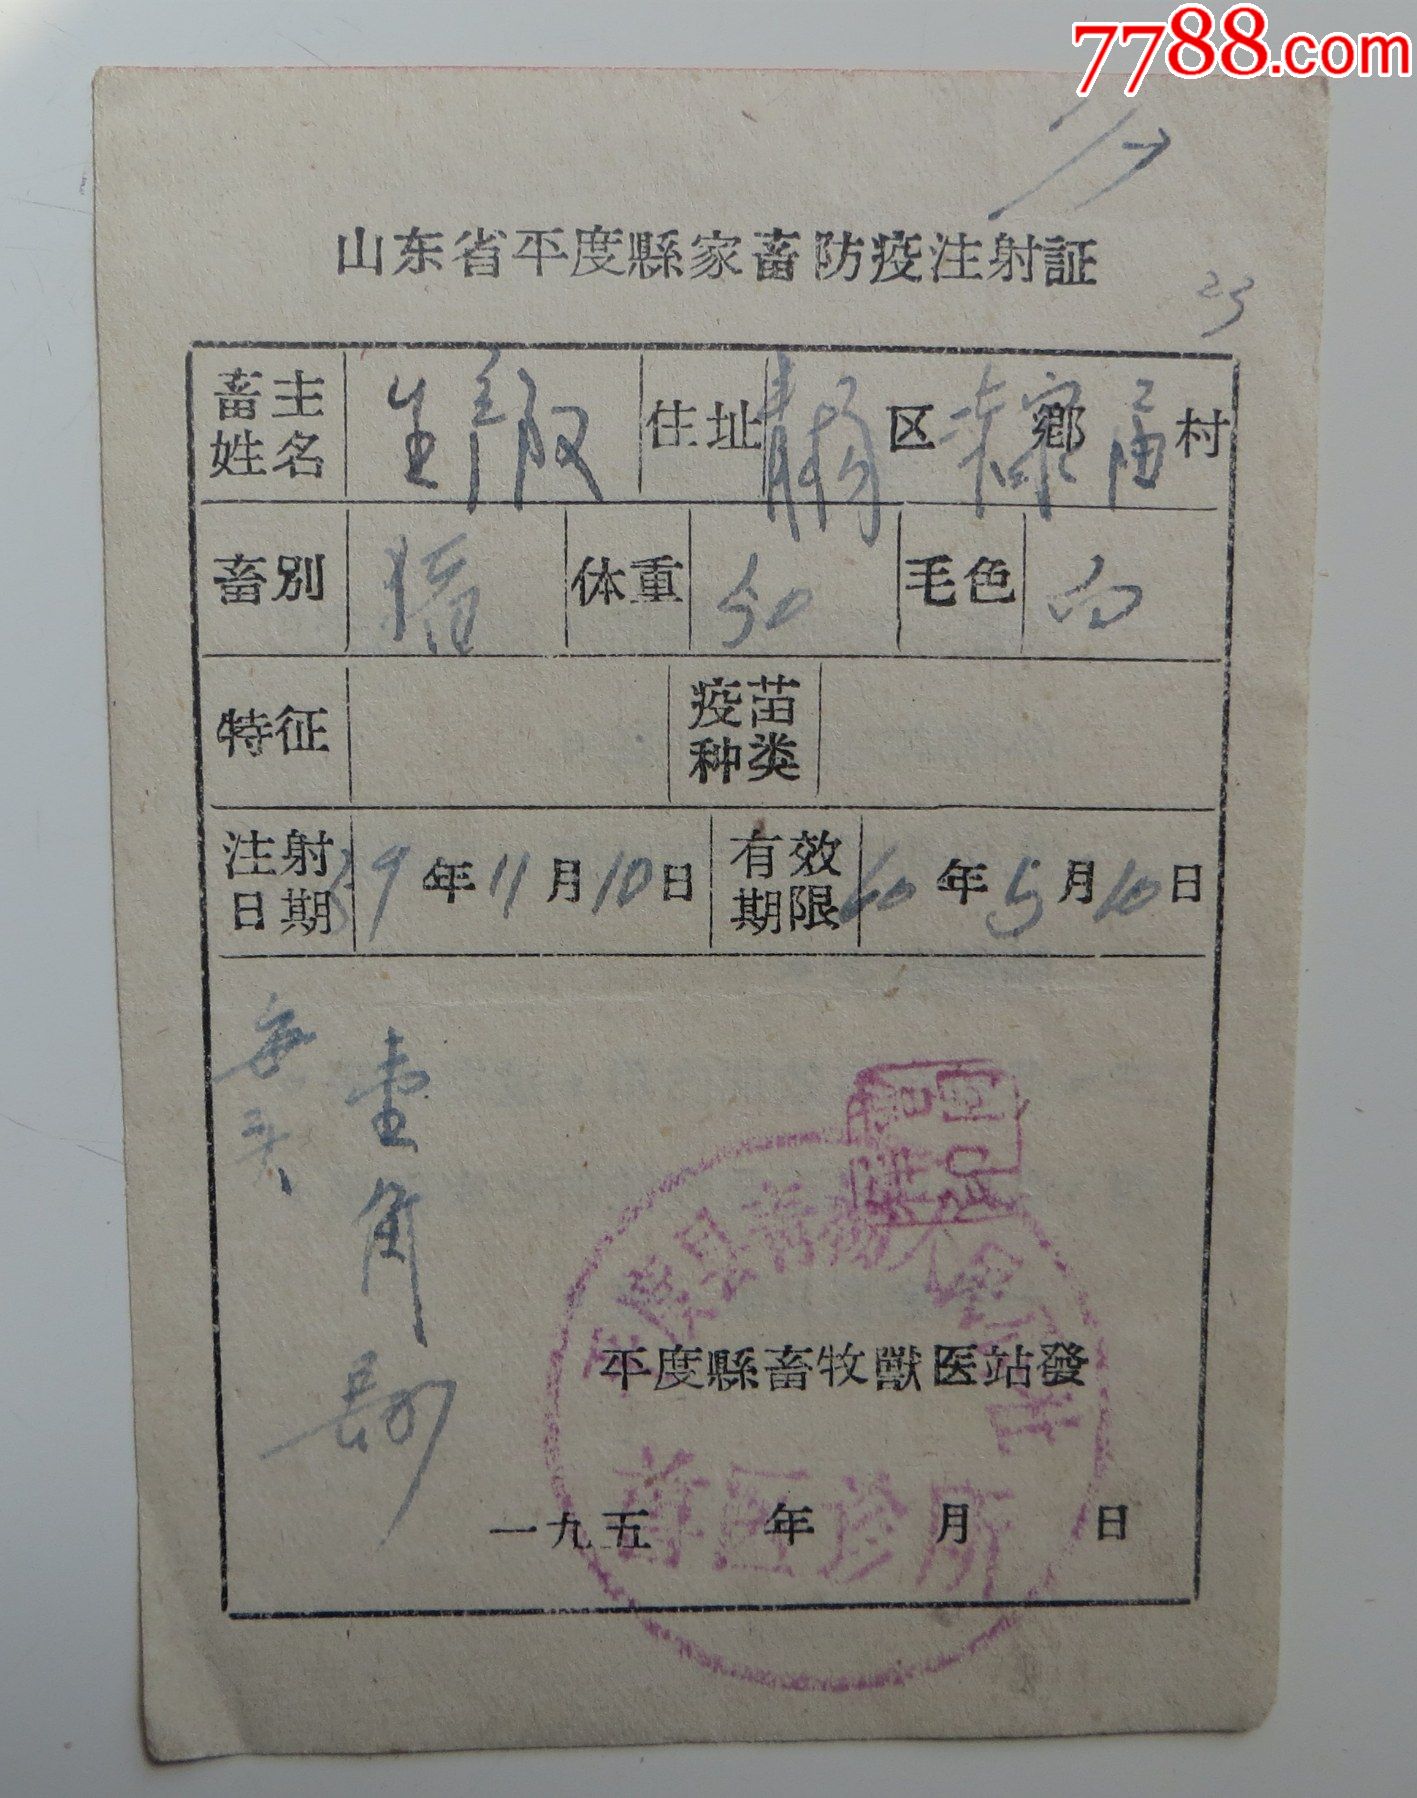 7788.com
山东省平度縣家畜防疫注射証
23
畜主姓名 住址 区 鄉 村
畜別 猪 体重 50 毛色 白
特征 疫苗种类
注射日期 59年11月10日 有效期限 60年5月10日
每头
壹角
平度縣畜牧獸医站發
一九五 年 月 日
兽医诊所